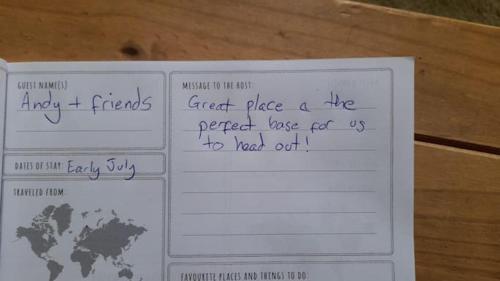 GUEST NAME(S)
Andy + friends
DATES OF STAY: Early July
TRAVELED FROM:
MESSAGE TO THE HOST:
Great place a the
perfect base for us
to head out!
FAVOURITE PLACES AND THINGS TO DO: